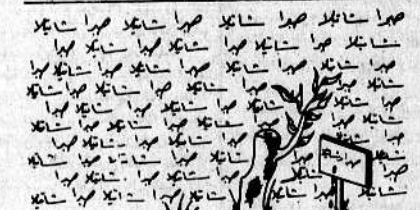 صبرا شاتيلا صبرا شاتيلا صبرا شاتيلا صبرا شاتيلا
شاتيلا صبرا شاتيلا صبرا شاتيلا صبرا شاتيلا صبرا
صبرا شاتيلا صبرا شاتيلا صبرا شاتيلا صبرا شاتيلا صبرا
شاتيلا صبرا شاتيلا صبرا شاتيلا صبرا شاتيلا صبرا شاتيلا
صبرا شاتيلا شاتيلا صبرا شاتيلا صبرا شاتيلا صبرا
شاتيلا صبرا صبرا شاتيلا صبرا شاتيلا صبرا شاتيلا
شاتيلا صبرا شاتيلا صبرا شاتيلا صبرا
صبرا شاتيلا صبرا شاتيلا صبرا شاتيلا
صبرا شاتيلا صبرا شاتيلا صبرا
شاتيلا صبرا شاتيلا صبرا شاتيلا صبرا شاتيلا